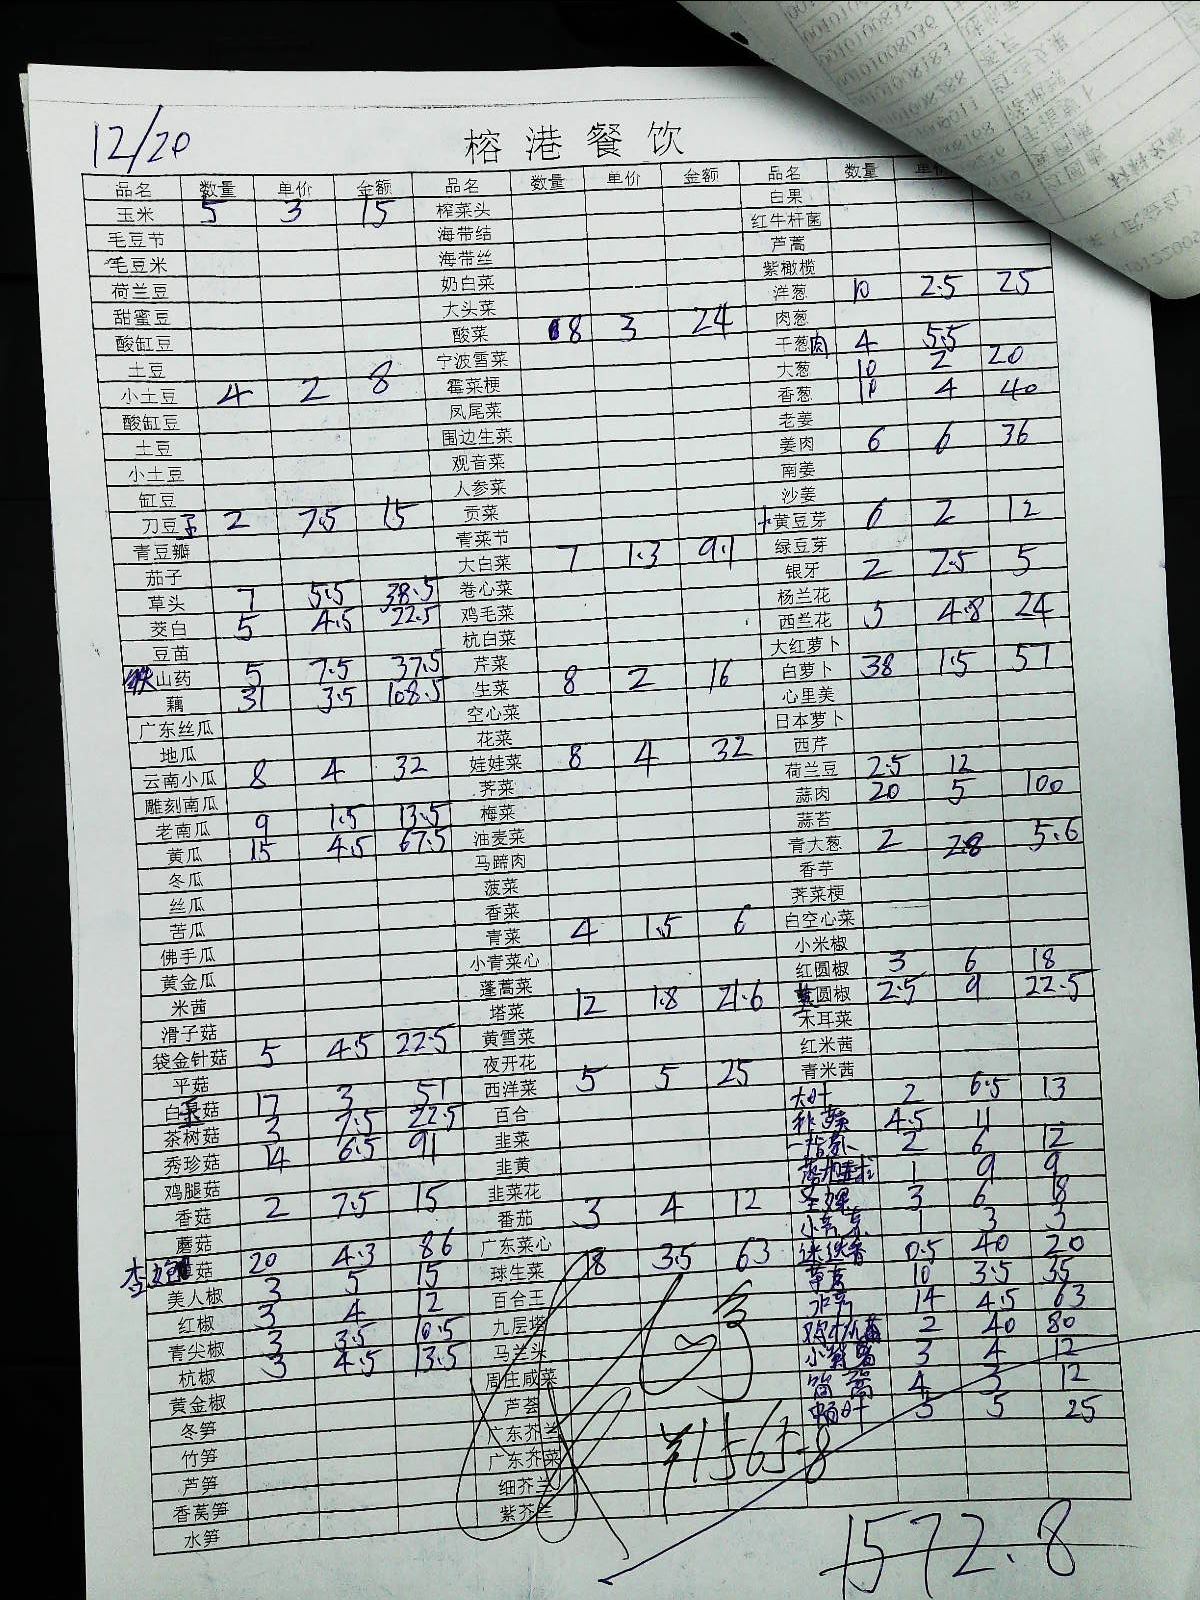 12/20
榕港餐饮
品名 数量 单价 金额 品名 数量 单价 金额 品名 数量
玉米 5 3 15 榨菜头 白果
毛豆节 海带结 红牛杆菌
毛豆米 海带丝 芦蒿
荷兰豆 奶白菜 紫橄榄
甜蜜豆 大头菜 洋葱 10 2.5 25
酸缸豆 酸菜 8 3 24 肉葱
土豆 宁波雪菜 干葱肉 4 5.5
小土豆 4 2 8 霉菜梗 大葱 10 2 20
酸缸豆 凤尾菜 香葱 10 4 40
土豆 围边生菜 老姜
小土豆 观音菜 姜肉 6 6 36
缸豆 人参菜 南姜
刀豆 2 7.5 15 贡菜 沙姜
青豆瓣 青菜节 黄豆芽 6 2 12
茄子 大白菜 7 1.3 9.1 绿豆芽
草头 7 5.5 38.5 卷心菜 银牙 2 2.5 5
茭白 5 4.5 22.5 鸡毛菜 杨兰花
豆苗 杭白菜 西兰花 5 4.8 24
铁山药 5 7.5 37.5 芹菜 大红萝卜
藕 31 3.5 108.5 生菜 8 2 16 白萝卜 38 1.5 51
广东丝瓜 空心菜 心里美
地瓜 花菜 日本萝卜
云南小瓜 8 4 32 娃娃菜 8 4 32 西芹
雕刻南瓜 荠菜 荷兰豆 2.5 12
老南瓜 9 1.5 13.5 梅菜 蒜肉 20 5 100
黄瓜 15 4.5 67.5 油麦菜 蒜苔
冬瓜 马蹄肉 青大葱 2 2.8 5.6
丝瓜 菠菜 香芋
苦瓜 香菜 荠菜梗
佛手瓜 青菜 4 1.5 6 白空心菜
黄金瓜 小青菜心 小米椒
米茜 蓬蒿菜 红圆椒 3 6 18
滑子菇 塔菜 12 1.8 21.6 圆椒 2.5 9 22.5
袋金针菇 5 4.5 22.5 黄雪菜 木耳菜
平菇 夜开花 红米茜
白菇 17 3 51 西洋菜 5 5 25 青米茜
茶树菇 3 7.5 22.5 百合 大叶 2 6.5 13
秀珍菇 14 6.5 91 韭菜 4.5 11
鸡腿菇 韭黄 2 6 12
香菇 2 7.5 15 韭菜花 1 9 9
蘑菇 番茄 3 4 12 3 6 18
菇 20 4.3 86 广东菜心 18 3.5 63 1 3 3
美人椒 3 5 15 球生菜 迷迭香 0.5 40 20
红椒 3 4 12 百合王 10 3.5 35
青尖椒 3 3.5 10.5 九层塔 14 4.5 63
杭椒 3 4.5 13.5 马兰头 2 40 80
黄金椒 周庄咸菜 3 4 12
冬笋 芦荟 4 3 12
竹笋 广东芥兰 5 5 25
芦笋 广东芥菜
香莴笋 细芥兰
水笋 紫芥兰
¥1565.8
1572.8